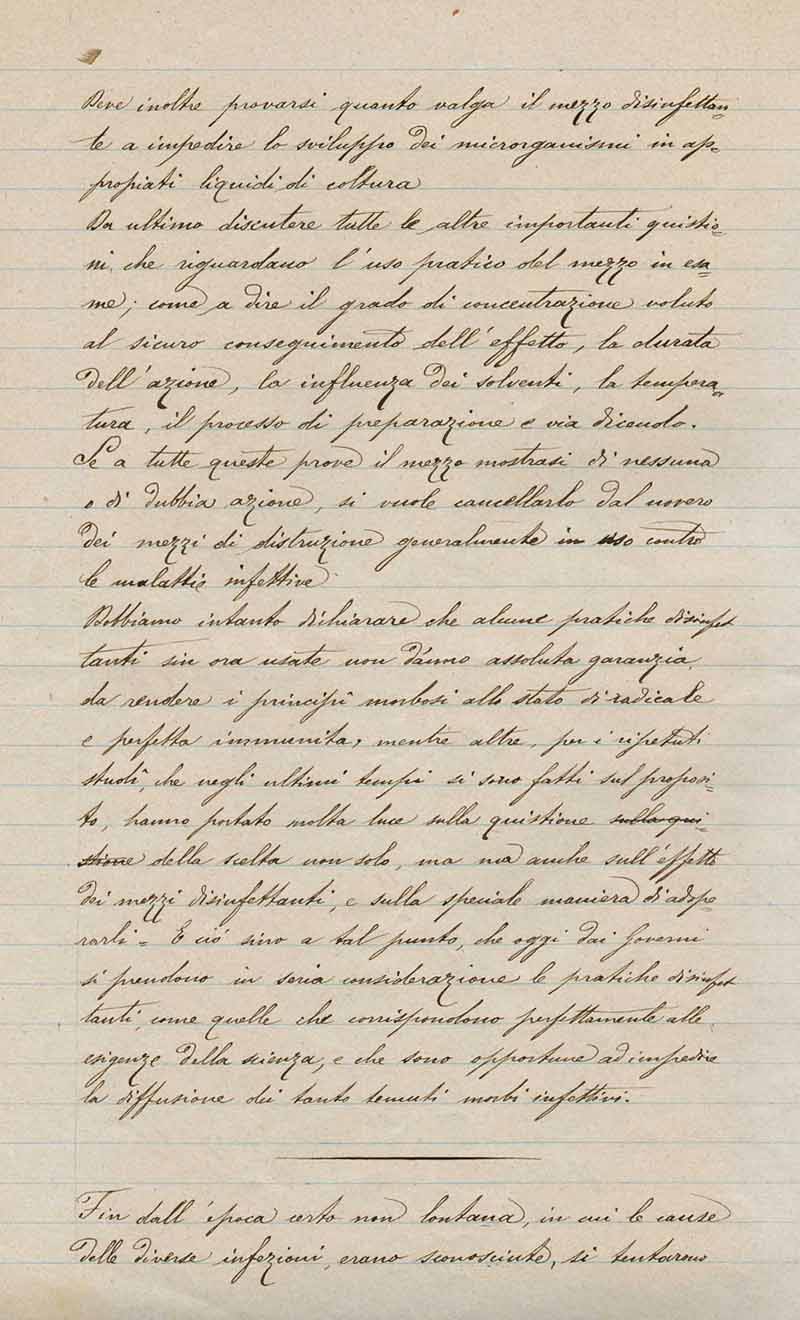 Deve inoltre provarsi quanto valga il mezzo disinfettan=
te a impedire lo sviluppo dei microrganismi in ap=
propiati liquidi di coltura
Da ultimo discutere tutte le altre importanti quistio=
ni, che riguardano l'uso pratico del mezzo in esa=
me; come a dire il grado di concentrazione voluto
al sicuro conseguimento dell'effetto, la durata
dell'azione, la influenza dei solventi, la tempera=
tura, il processo di preparazione e via dicendo.
Se a tutte queste prove il mezzo mostrasi di nessuna
o di dubbia azione, si vuole cancellarlo dal novero
dei mezzi di distruzione generalmente in uso contro
le malattie infettive
Dobbiamo intanto dichiarare che alcune pratiche disinfet
tanti sin ora usate non dànno assoluta garanzia,
da rendere i principî morbosi allo stato di radicale
e perfetta immunita, mentre altre, per i ripetuti
studî, che negli ultimi tempi si sono fatti sul proposi=
to, hanno portato molta luce sulla quistione sulla qui=
stione della scelta non solo, ma ma anche sull'effetto
dei mezzi disinfettanti, e sulla speciale maniera di adope
rarli = E ciò sino a tal punto, che oggi dai Governi
si prendono in seria considerazione le pratiche disinfet
tanti, come quelle che corrispondono perfettamente alle
esigenze della scienza, e che sono opportune ad impedire
la diffusione dei tanto temuti morbi infettivi.
Fin dall'epoca certo non lontana, in cui le cause
delle diverse infezioni, erano sconosciute, si tentarono